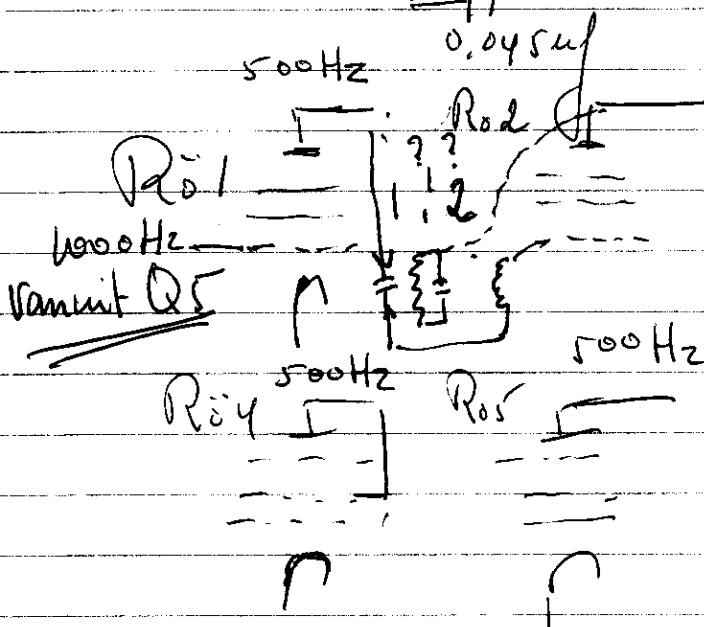 0,045 uf
500 Hz
Rö1
Rö2
? ?
! !
1000 Hz
vanuit Q5
500 Hz
500 Hz
Rö4
Rö5